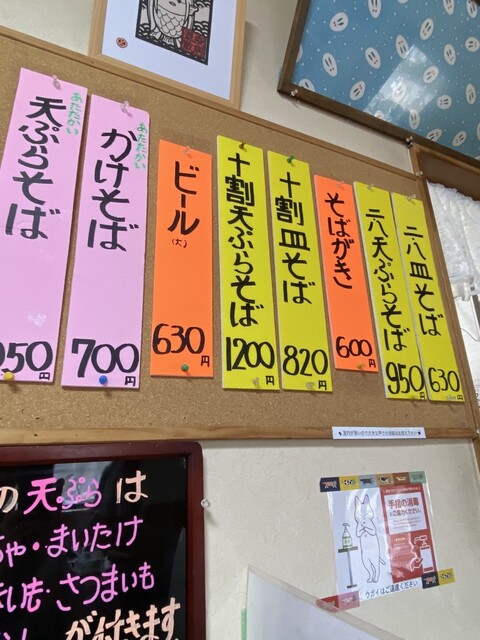 二八皿そば
630円
二八天ぷらそば
950円
そばがき
600円
十割皿そば
820円
十割天ぷらそば
1200円
ビール
(大)
630円
あたたかい
かけそば
700円
あたたかい
天ぷらそば
950円
の天ぷらは
ちゃ・まいたけ
いも・さつまいも
が付きます
手指の消毒
にご協力ください。
ウガイはご遠慮ください